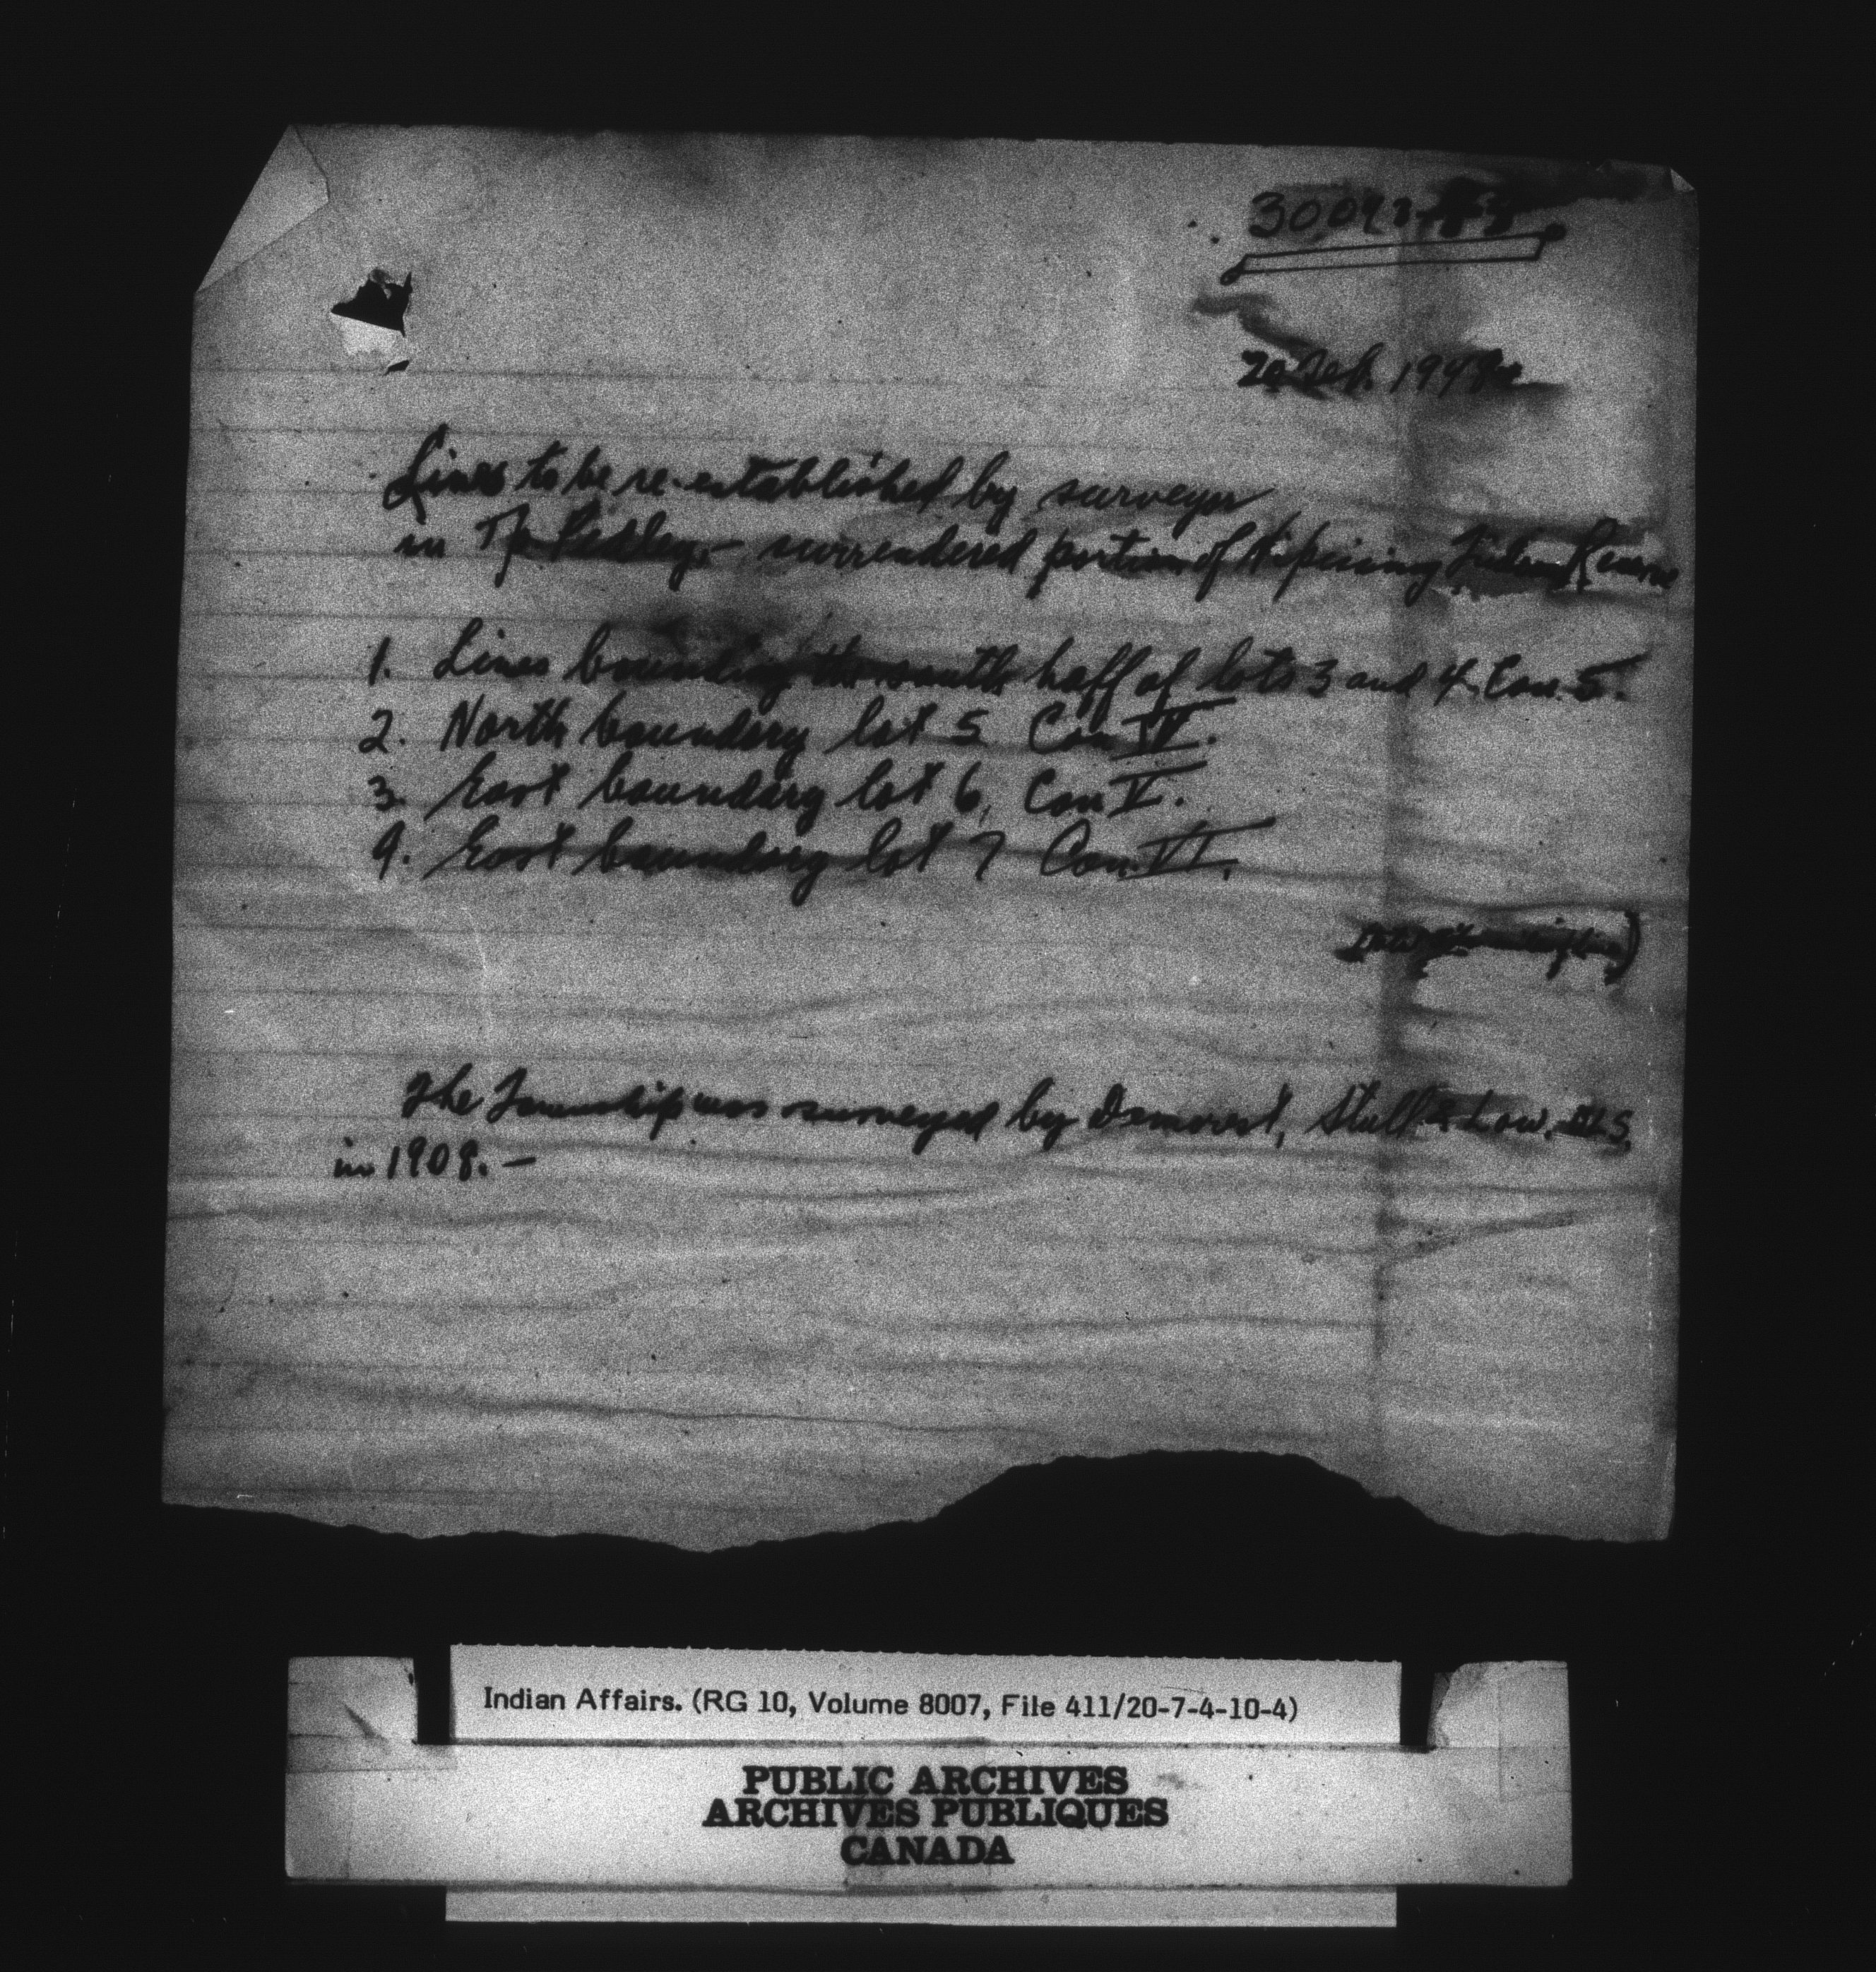 Lines to be re-established by surveyor
in Tp Pedley,- surrendered portion of Nipissing Indian Reserve
1. Lines bounding the south half of lots 3 and 4 Con. 5.
2. North boundary lot 5 Con IV.
3. East boundary lot 6, Con V.
4. East boundary lot 7 Con. VI.
The Township was surveyed by Demorest, Stull & Low,
in 1908. -
Indian Affairs. (RG 10, Volume 8007, File 411/20-7-4-10-4)
PUBLIC ARCHIVES
ARCHIVES PUBLIQUES
CANADA